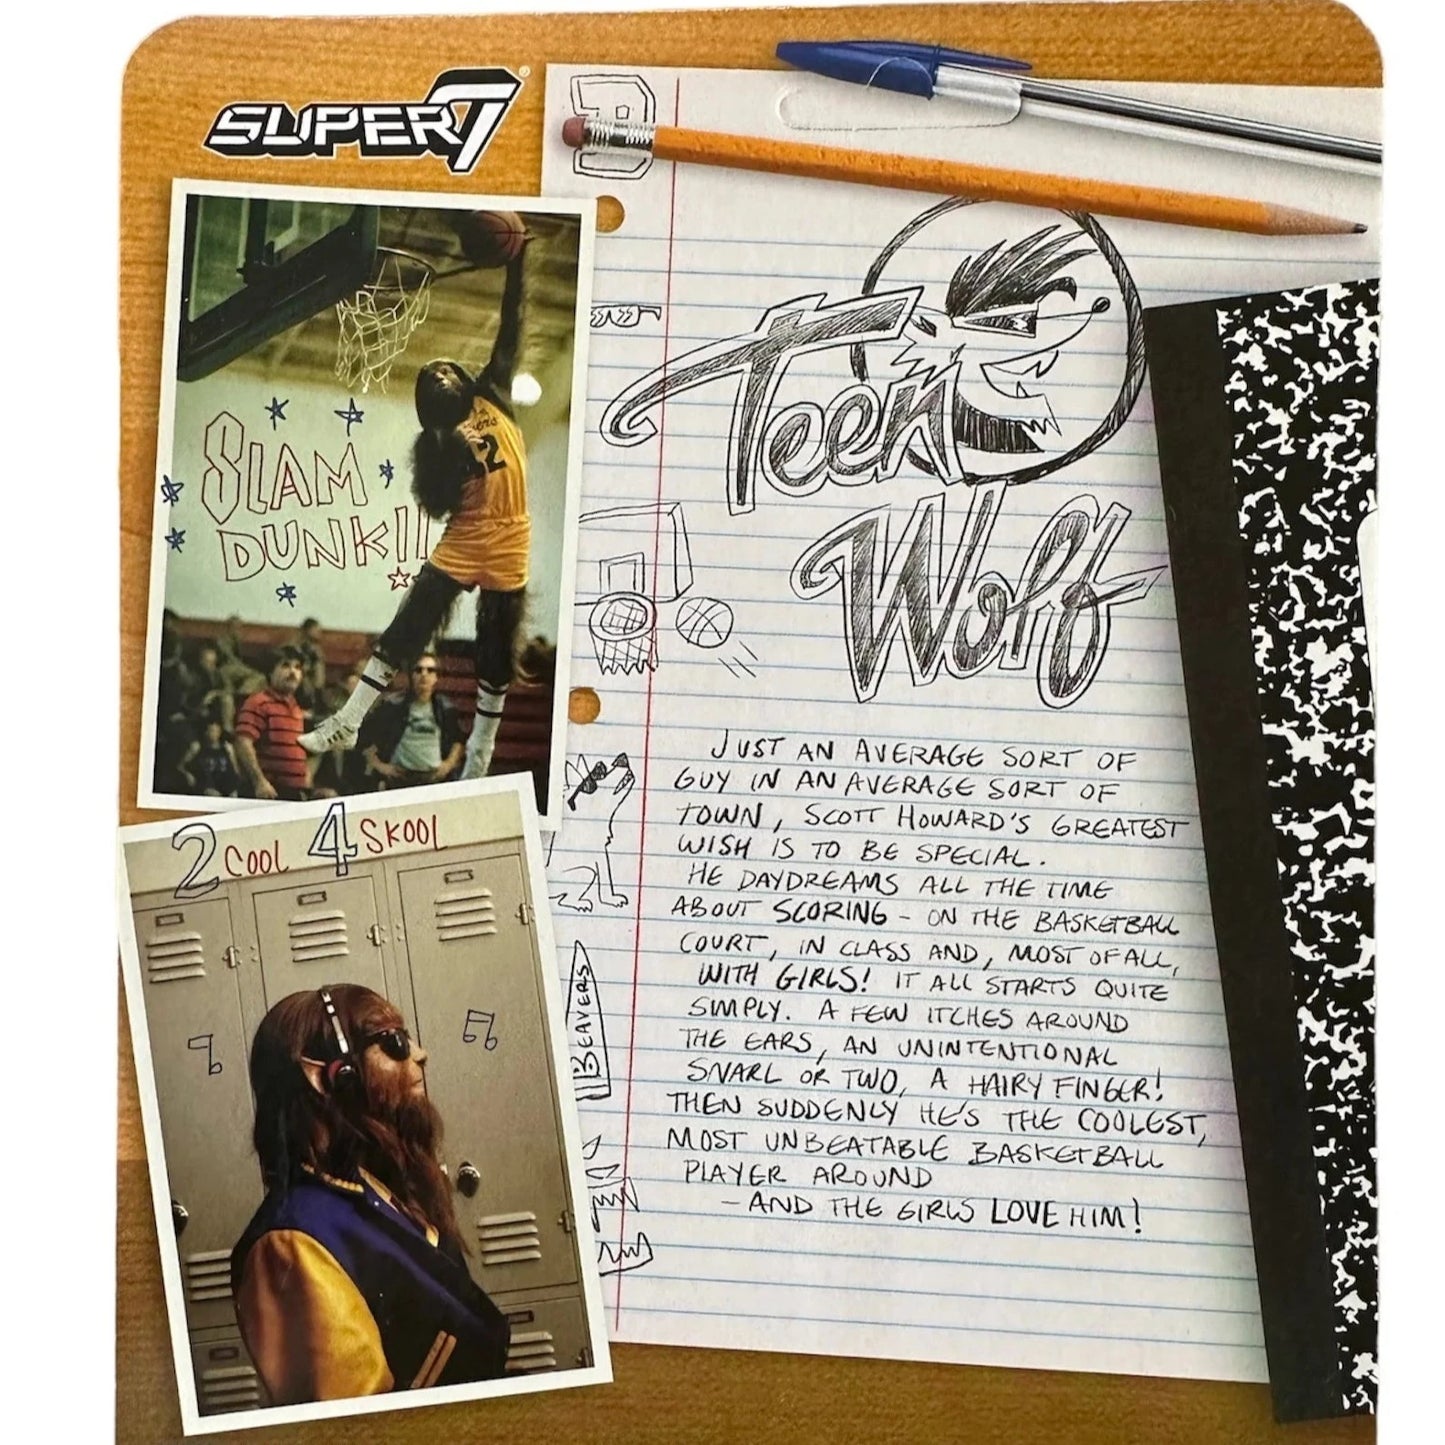 SUPER7®
SLAM
DUNK!!
2 COOL 4 SKOOL
TEEN
WOLF
BEAVERS
JUST AN AVERAGE SORT OF
GUY IN AN AVERAGE SORT OF
TOWN, SCOTT HOWARD'S GREATEST
WISH IS TO BE SPECIAL.
HE DAYDREAMS ALL THE TIME
ABOUT SCORING - ON THE BASKETBALL
COURT, IN CLASS AND, MOST OF ALL,
WITH GIRLS! IT ALL STARTS QUITE
SIMPLY. A FEW ITCHES AROUND
THE EARS, AN UNINTENTIONAL
SNARL OR TWO, A HAIRY FINGER!
THEN SUDDENLY HE'S THE COOLEST,
MOST UNBEATABLE BASKETBALL
PLAYER AROUND
- AND THE GIRLS LOVE HIM!